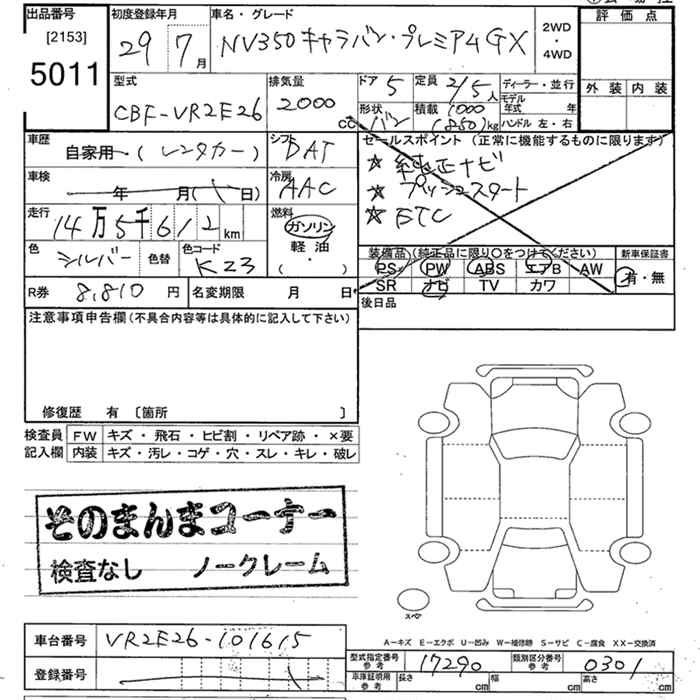 出品番号
[2153]
5011
初度登録年月
29 7月
車名・グレード
NV350 キャラバン・プレミアムGX
2WD
・
4WD
評価点
外装 内装
型式
CBF-VR2E26
排気量
2000
CC
ドア 5
定員 2/5人
形状 バン
積載 1000 (850)kg
ディーラー・並行
モデル年式 年
ハンドル 左・右
車歴
自家用・(レンタカー)
シフト
DAT
セールスポイント (正常に機能するものに限ります)
☆ 純正ナビ
☆ プッシュスタート
☆ ETC
車検
年 月( 日)
冷房
AAC
走行
14万5千612km
燃料
ガソリン
軽油
(・)
色
シルバー
色替
色コード
K23
装備品 (純正品に限り○をつけてください)
PS PW ABS エアB AW
SR ナビ TV カワ
新車保証書
有・無
R券 8,810円
名変期限 月 日
後日品
注意事項申告欄(不具合内容等は具体的に記入して下さい)
修復歴 有 〔箇所 〕
検査員記入欄
FW キズ・飛石・ヒビ割・リペア跡・×要
内装 キズ・汚レ・コゲ・穴・スレ・キレ・破レ
そのまんまコーナー
検査なし ノークレーム
スペア
A－キズ E－エクボ U－凹み W－補修跡 S－サビ C－腐食 XX－交換済
車台番号 VR2E26-101615
登録番号
型式指定番号
参考
17290
類別区分番号
参考
0301
車庫証明用
参考
長さ cm
幅 cm
高さ cm